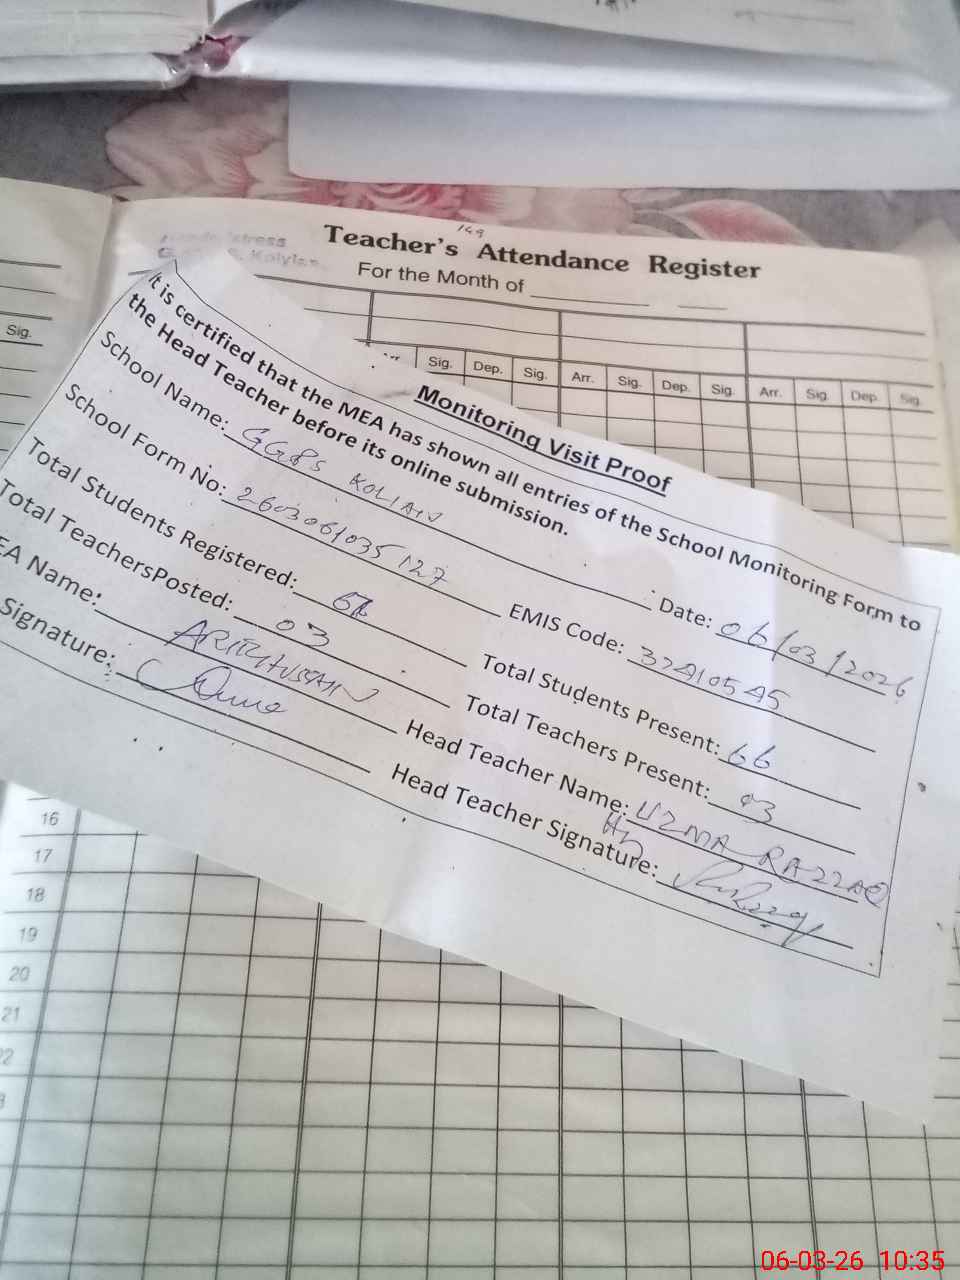 169
Teacher's Attendance Register
For the Month of
Sig.
Sig. Dep. Sig. Arr. Sig. Dep. Sig. Arr. Sig. Dep. Sig.
Monitoring Visit Proof
It is certified that the MEA has shown all entries of the School Monitoring Form to
the Head Teacher before its online submission.
School Name: GGPS Date: 06/03/2026
School Form No: 2603061035127 EMIS Code: 32410545
Total Students Registered: Total Students Present: 66
Total TeachersPosted: 03 Total Teachers Present: 03
EA Name: Head Teacher Name: UZMA RAZZAQ
Signature: Head Teacher Signature:
16
17
18
19
20
21
06-03-26 10:35